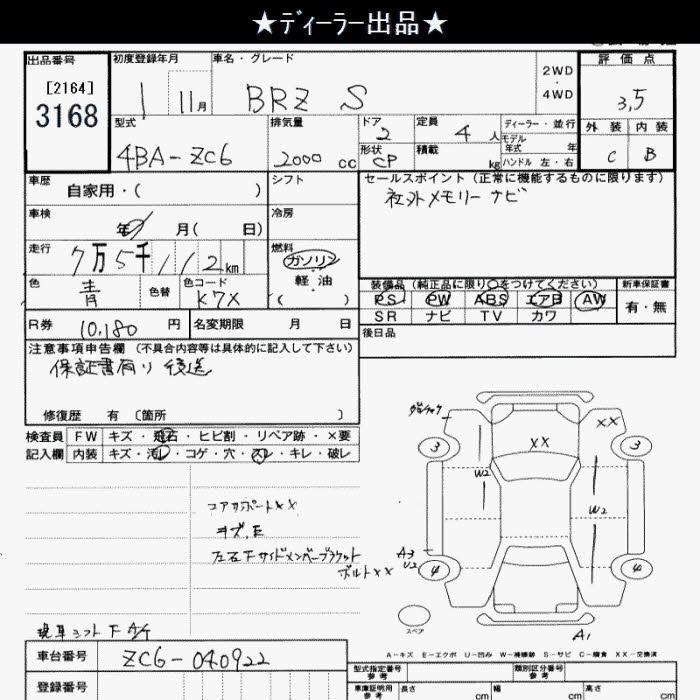 ★ディーラー出品★
出品番号
[2164]
3168
初度登録年月
1 11月
車名・グレード
BRZ S
2WD
・
4WD
評価点
3,5
外装 内装
C B
型式
4BA-ZC6
排気量
2000 cc
ドア
2
形状
CP
定員
4 人
積載
kg
ディーラー・並行
モデル年式 年
ハンドル 左・右
車歴
自家用・( )
シフト
セールスポイント (正常に機能するものに限ります)
社外メモリーナビ
車検
年 月( 日)
冷房
走行
7万5千112km
燃料
ガソリン
・
軽油
( )
色
青
色替
色コード
K7X
装備品 (純正品に限り○をつけてください)
PS PW ABS エアB AW
SR ナビ TV カワ
新車保証書
有・無
R券 10,180 円
名変期限 月 日
後日品
注意事項申告欄 (不具合内容等は具体的に記入して下さい)
保証書有り 後送
修復歴 有 (箇所 )
検査員
記入欄
FW キズ・飛石・ヒビ割・リペア跡・×要
内装 キズ・汚レ・コゲ・穴・スレ・キレ・破レ
コアサポートXX
左右FサイドメンバーブラケットボルトXX
現車シフト F A/T
XX
XX
3
3
W2
W2
A3
U2
4
4
スペア
A1
A-キズ E-エクボ U-凹み W-補修跡 S-サビ C-腐食 XX-交換済
車台番号
ZC6-040922
登録番号
型式指定番号
参考
類別区分番号
参考
車庫証明用
参考
長さ cm
幅 cm
高さ cm